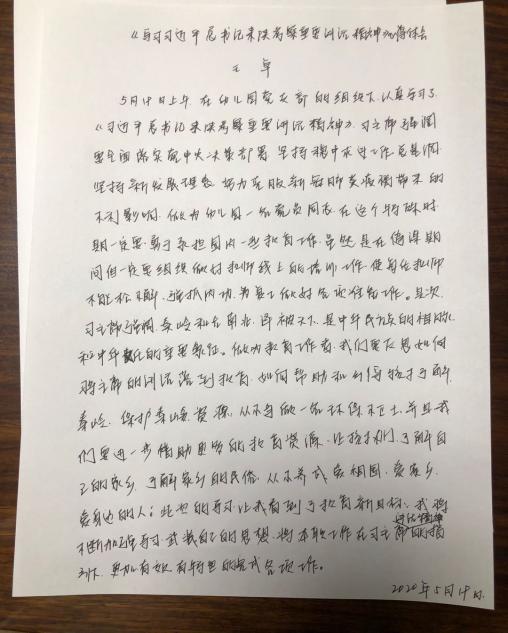 《学习习近平总书记来陕考察重要讲话精神》心得体会
王 卓
5月19日上午,在幼儿园党支部的组织下,认真学习了
《习近平总书记来陕考察重要讲话精神》,习主席强调
要全面落实党中央决策部署,坚持稳中求进工作总基调,
坚持新发展理念,努力克服新冠肺炎疫情带来的
不利影响。做为幼儿园一名党员同志,在这个特殊时
期一定要勇于承担园内一些教育工作,虽然是在停课期
间但一定要组织做好教师线上的培训工作,使每位教师
不能松懈,强抓内功,为复工做好各项准备工作。其次,
习主席强调,秦岭和合南北,泽被天下,是中华民族的祖脉
和中华文化的重要象征。做为教育工作者,我们要反思如何
将主席的讲话落到教育,如何帮助和引导孩子了解
秦岭,保护秦岭资源,从小争做一名环保小卫士,并且我
们要进一步借助更多的教育资源,让孩子们了解自
己的家乡,了解家乡的民俗,从小养成爱祖国,爱家乡,
爱身边的人;此次的学习,让我看到了教育新目标,我将
不断加强学习,武装自己的思想,将本职工作在习主席讲话精神的指
引下,更加有效有特色的完成各项工作。
2020年5月19日